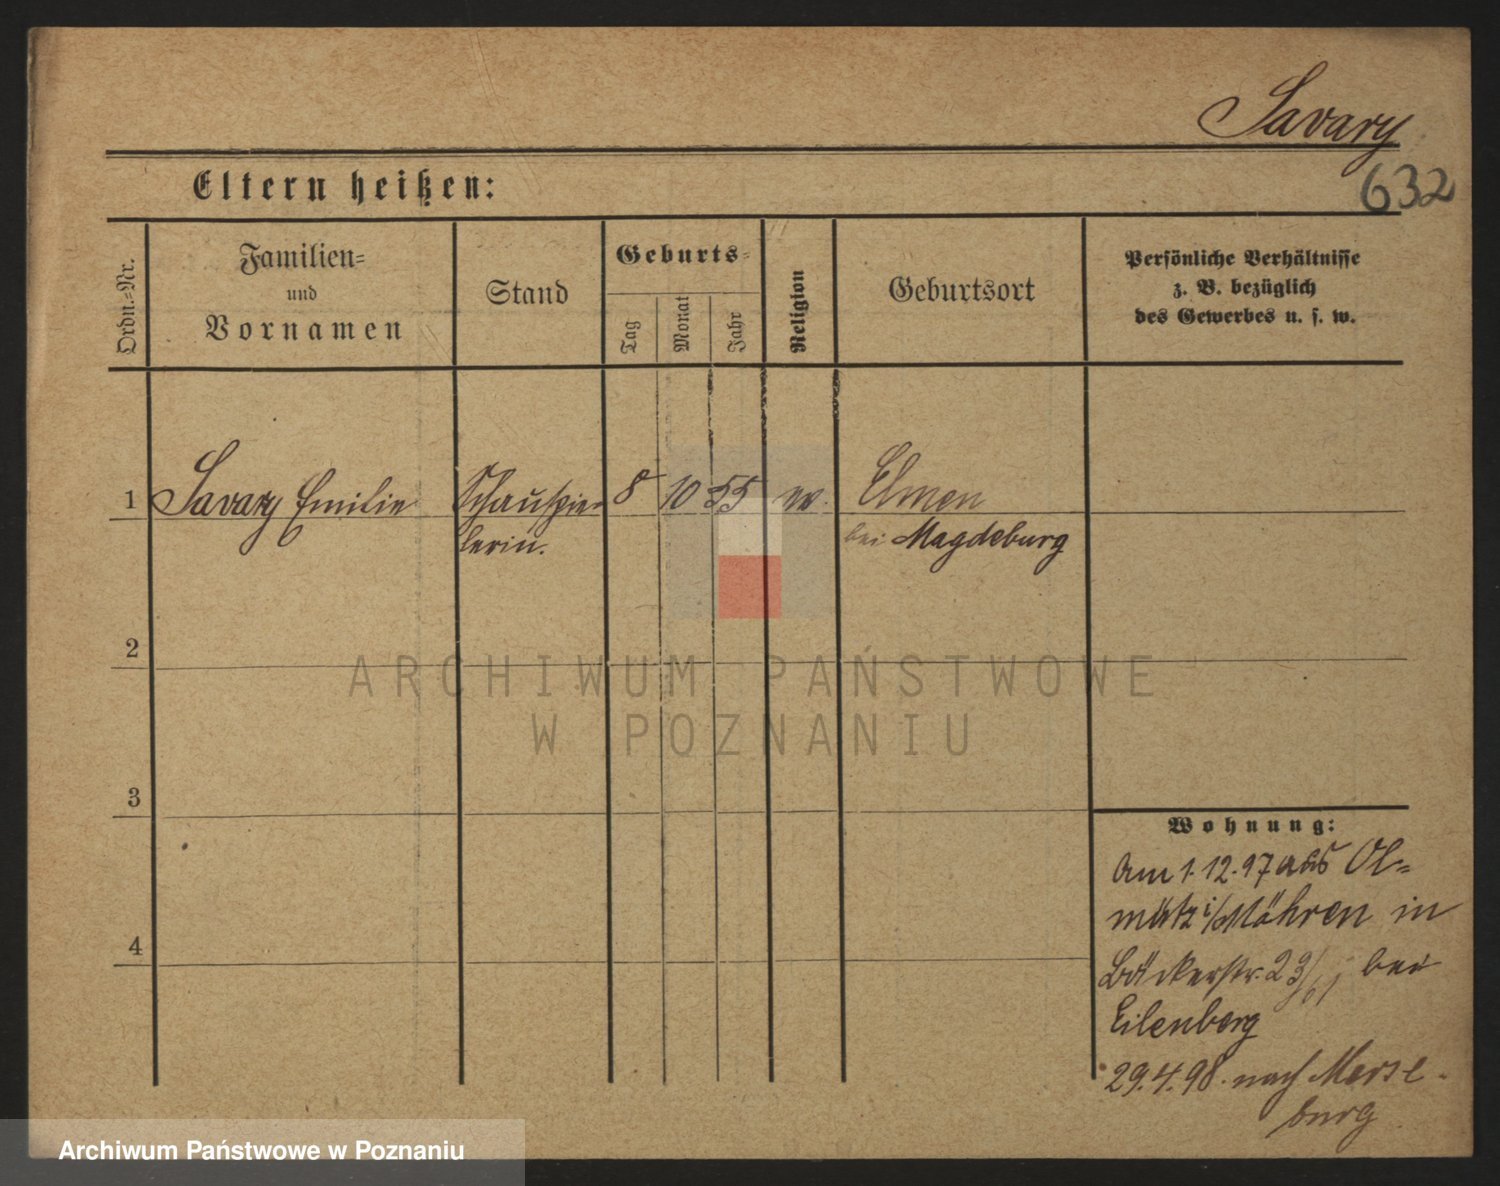 Savary
632
Eltern heißen:
Ordn.=Nr.
Familien=
und
Vornamen
Stand
Geburts=
Tag
Monat
Jahr
Religion
Geburtsort
Persönliche Verhältnisse
z. B. bezüglich
des Gewerbes u. s. w.
1 Savary Emilie Schauspie- 8 10 55 ev. Elmen
lerin. bei Magdeburg
2
3
4
ARCHIWUM PAŃSTWOWE
W POZNANIU
Wohnung:
Am 1.12.97 aus Ol=
mütz i/Mähren in
Bäckerstr. 23/ bei
Eilenberg
29.4.98. nach Merse-
burg
Archiwum Państwowe w Poznaniu